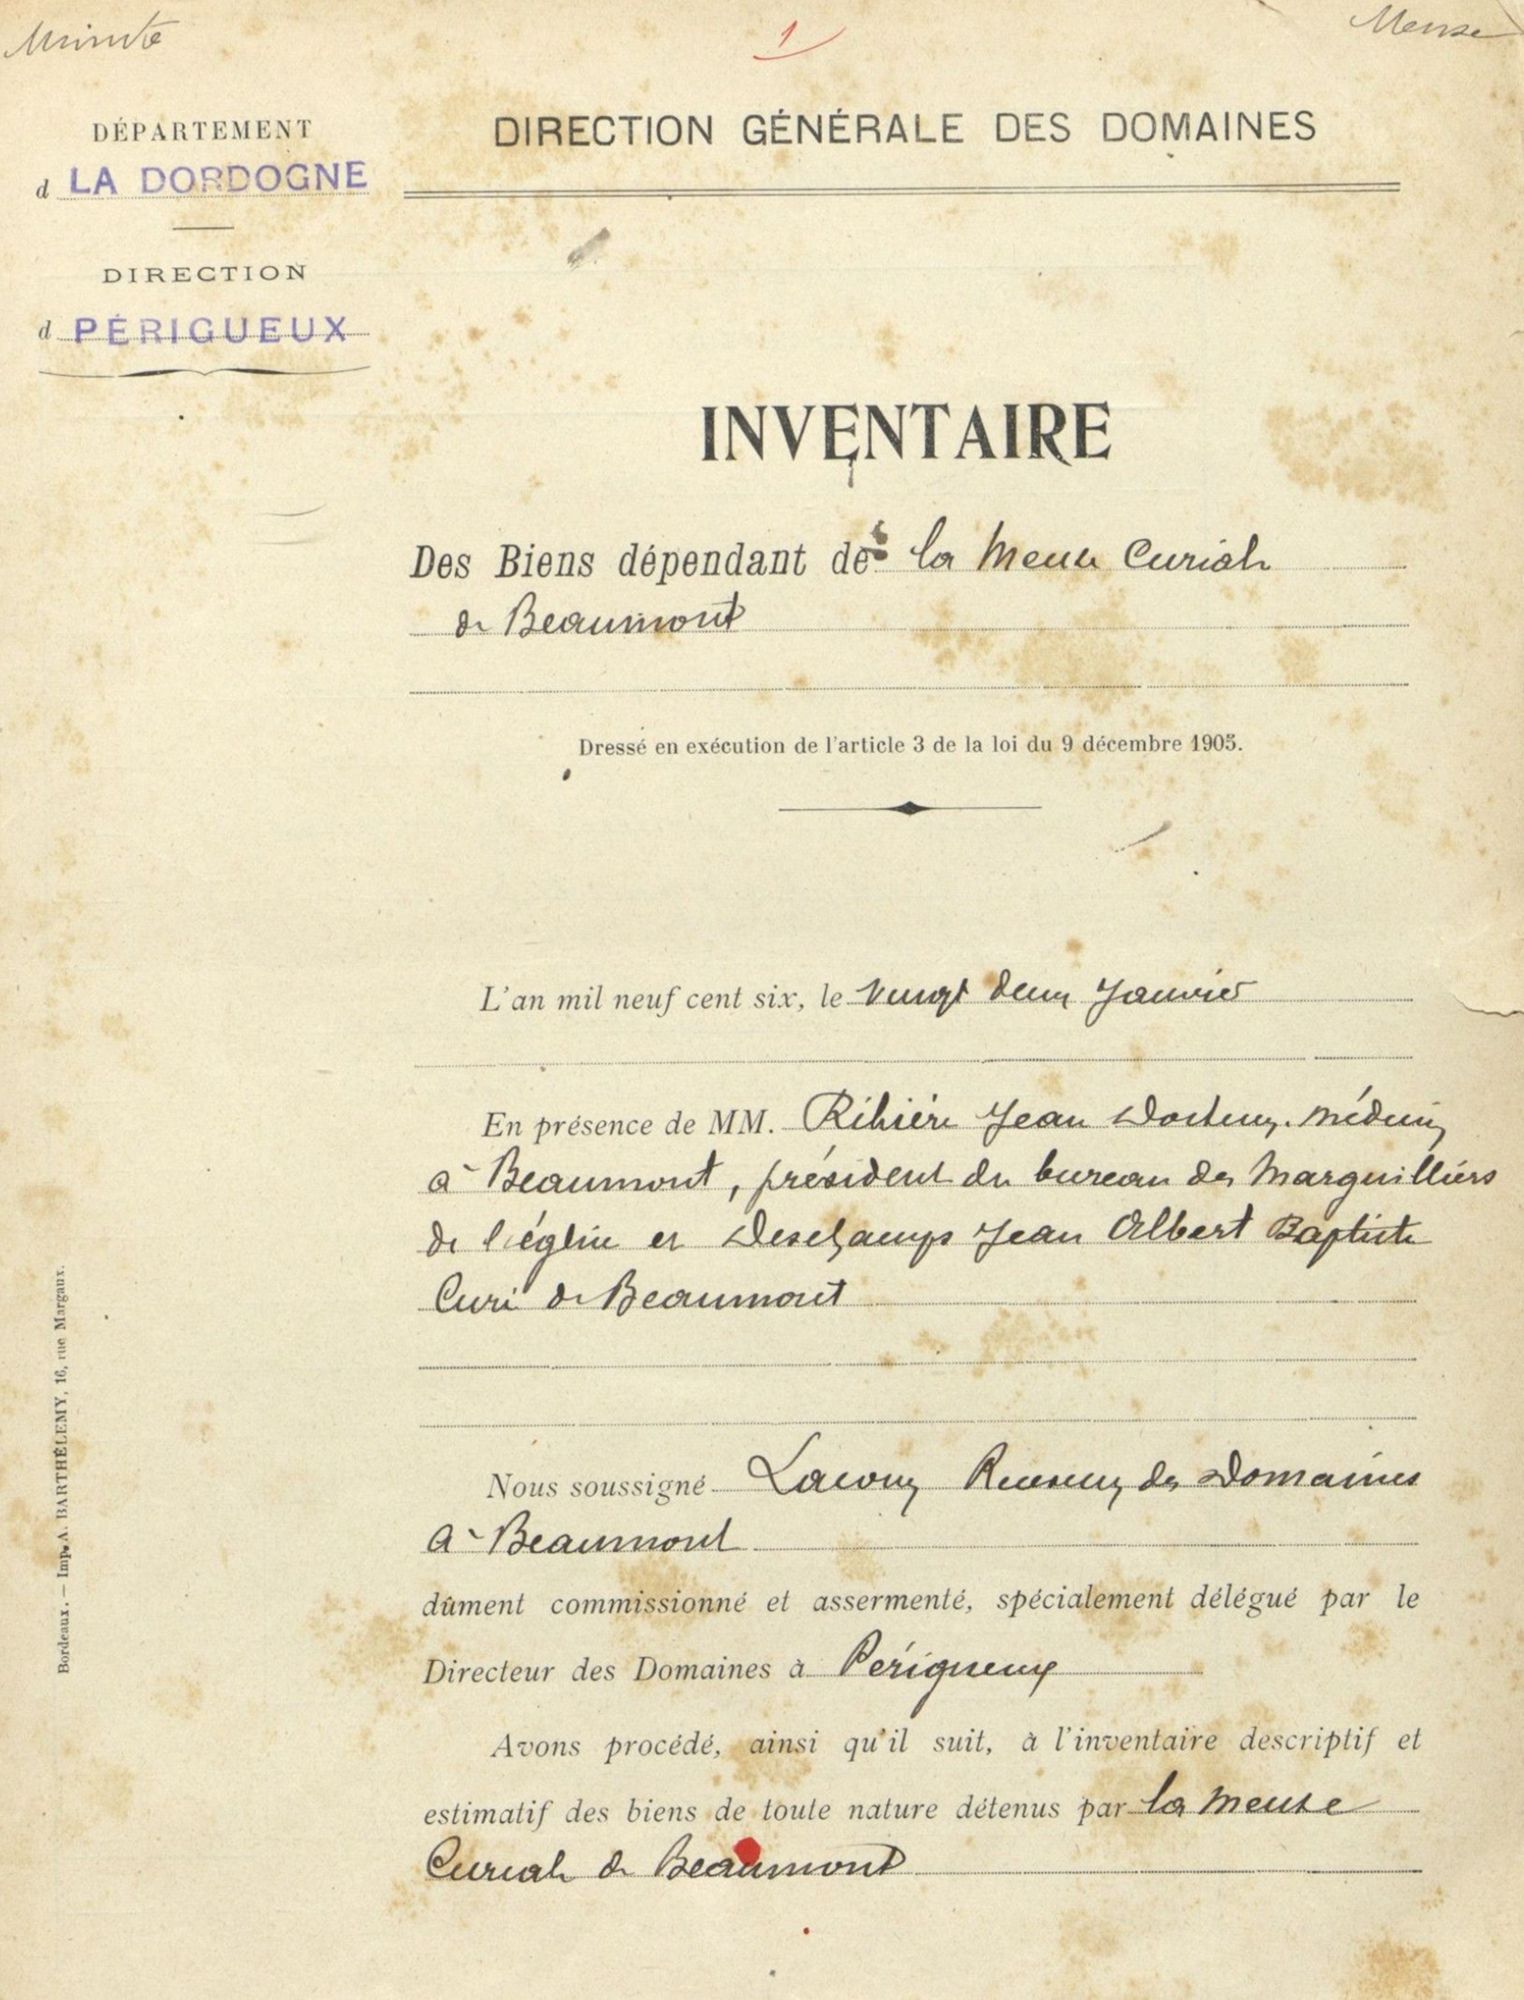 Minute
1
Mense
DÉPARTEMENT
d LA DORDOGNE
DIRECTION
d PÉRIGUEUX
DIRECTION GÉNÉRALE DES DOMAINES
INVENTAIRE
Des Biens dépendant de la Mense Curiale
de Beaumont
Dressé en exécution de l'article 3 de la loi du 9 décembre 1905.
L'an mil neuf cent six, le vingt deux Janvier
En présence de MM. Ribière Jean Docteur médecin
à Beaumont, président du bureau des Marguilliers
de l'église et Deschamps Jean Albert Baptiste
Curé de Beaumont
Nous soussigné Receveur des Domaines
à Beaumont
dûment commissionné et assermenté, spécialement délégué par le
Directeur des Domaines à Périgueux
Avons procédé, ainsi qu'il suit, à l'inventaire descriptif et
estimatif des biens de toute nature détenus par la mense
Curiale de Beaumont
Bordeaux. — Imp. A. BARTHÉLEMY, 16, rue Margaux.